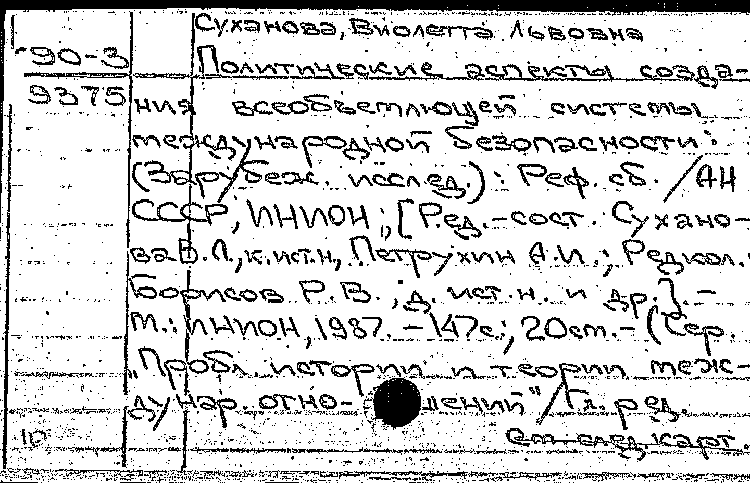 Суханова, Виолетта Львовна
90-3 Политические аспекты созда-
9375 ния всеобъемлющей системы
международной безопасности:
(Зарубеж. исслед.): Реф. сб. / АН
СССР, ИНИОН; [Ред.-сост. Сухано-
ва В.Л., к.ист.н, Петрухин А.И.; Редкол.:
Борисов Р.В., д. ист. н. и др.]. –
М.: ИНИОН, 1987. – 147с.; 20см. – (Сер.
"Пробл. истории и теории меж-
дунар. отно- шений" / Гл. ред.
См. след. карт.